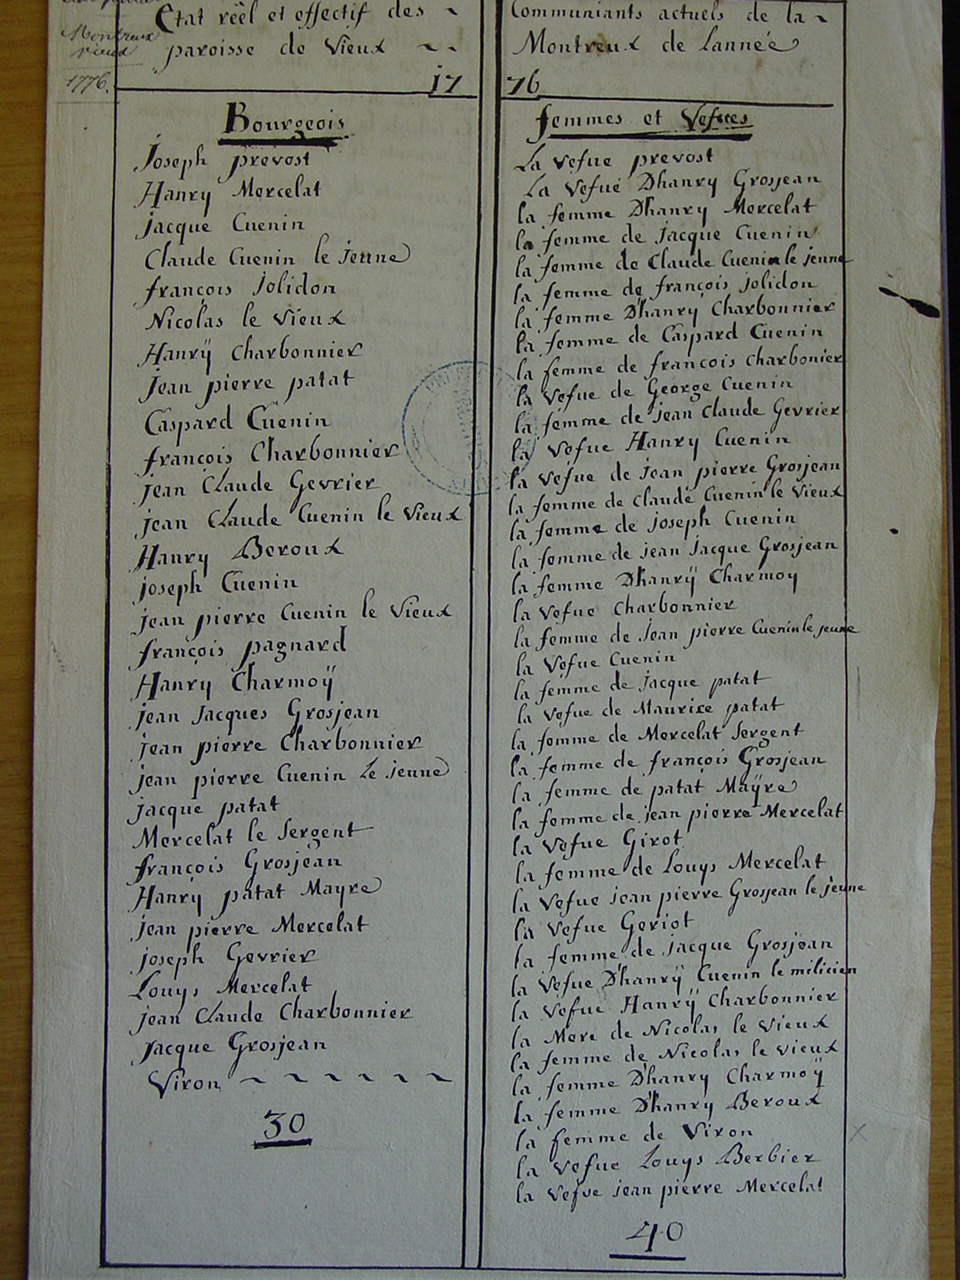 Montreux
vieux
1776.
Etat réel et effectif des ~
paroisse de Vieux ~ ~
17
Bourgeois
Joseph prevost
Hanry Mercelat
jacque Cuenin
Claude Cuenin le jeune
françois jolidon
Nicolas le Vieux
Hanrÿ Charbonnier
Jean pierre patat
Caspard Cuenin
francois Charbonnier
jean Claude Gevrier
jean Claude Cuenin le Vieux
Hanry Beroux
joseph Cuenin
jean pierre Cuenin le Vieux
françois pagnard
Hanry Charmoÿ
jean Jacques Grosjean
jean pierre Charbonnier
jean pierre Cuenin Le jeune
jacque patat
Mercelat le Sergent
françois Grosjean
Hanrÿ patat Mayre
jean pierre Mercelat
joseph Gevrier
Louys Mercelat
jean Claude Charbonnier
Jacque Grosjean
Viron ~ ~ ~ ~ ~ ~
30
Communiants actuels de la ~
Montreux de Lanneé
76
femmes et Vefues
La Vefue prevost
La Vefue Dhanry Grosjean
la femme Dhanry Mercelat
la femme de Jacque Cuenin
la femme de Claude Cuenin le jeune
la femme de françois Jolidon
la femme Dhanry Charbonnier
la femme de Caspard Cuenin
la femme de francois Charbonier
la Vefue de George Cuenin
la femme de jean Claude Gevrier
la Vefue Hanry Cuenin
la Vefue de jean pierre Grosjean
la femme de Claude Cuenin le Vieux
la femme de joseph Cuenin
la femme de jean Jacque Grosjean
la femme Dhanrÿ Charmoy
la Vefue Charbonnier
la femme de Jean pierre Cuenin le jeune
la Vefue Cuenin
la femme de jacque patat
la Vefue de Maurice patat
la femme de Mercelat Sergent
la femme de françois Grosjean
la femme de patat Maÿre
la femme de jean pierre Mercelat
la Vefue Girot
la femme de Louys Mercelat
la Vefue jean pierre Grosjean le jeune
la Vefue Geriot
la femme de jacque Grosjean
la Vefue D'hanrÿ Cuenin le milicien
la Vefue Hanrÿ Charbonnier
la Mere de Nicolas le Vieux
la femme de Nicolas le vieux
la femme D'hanry Charmoÿ
la femme D'hanry Beroux
la femme de Viron
la Vefue Louys Berbier
la Vefue jean pierre Mercelat
40